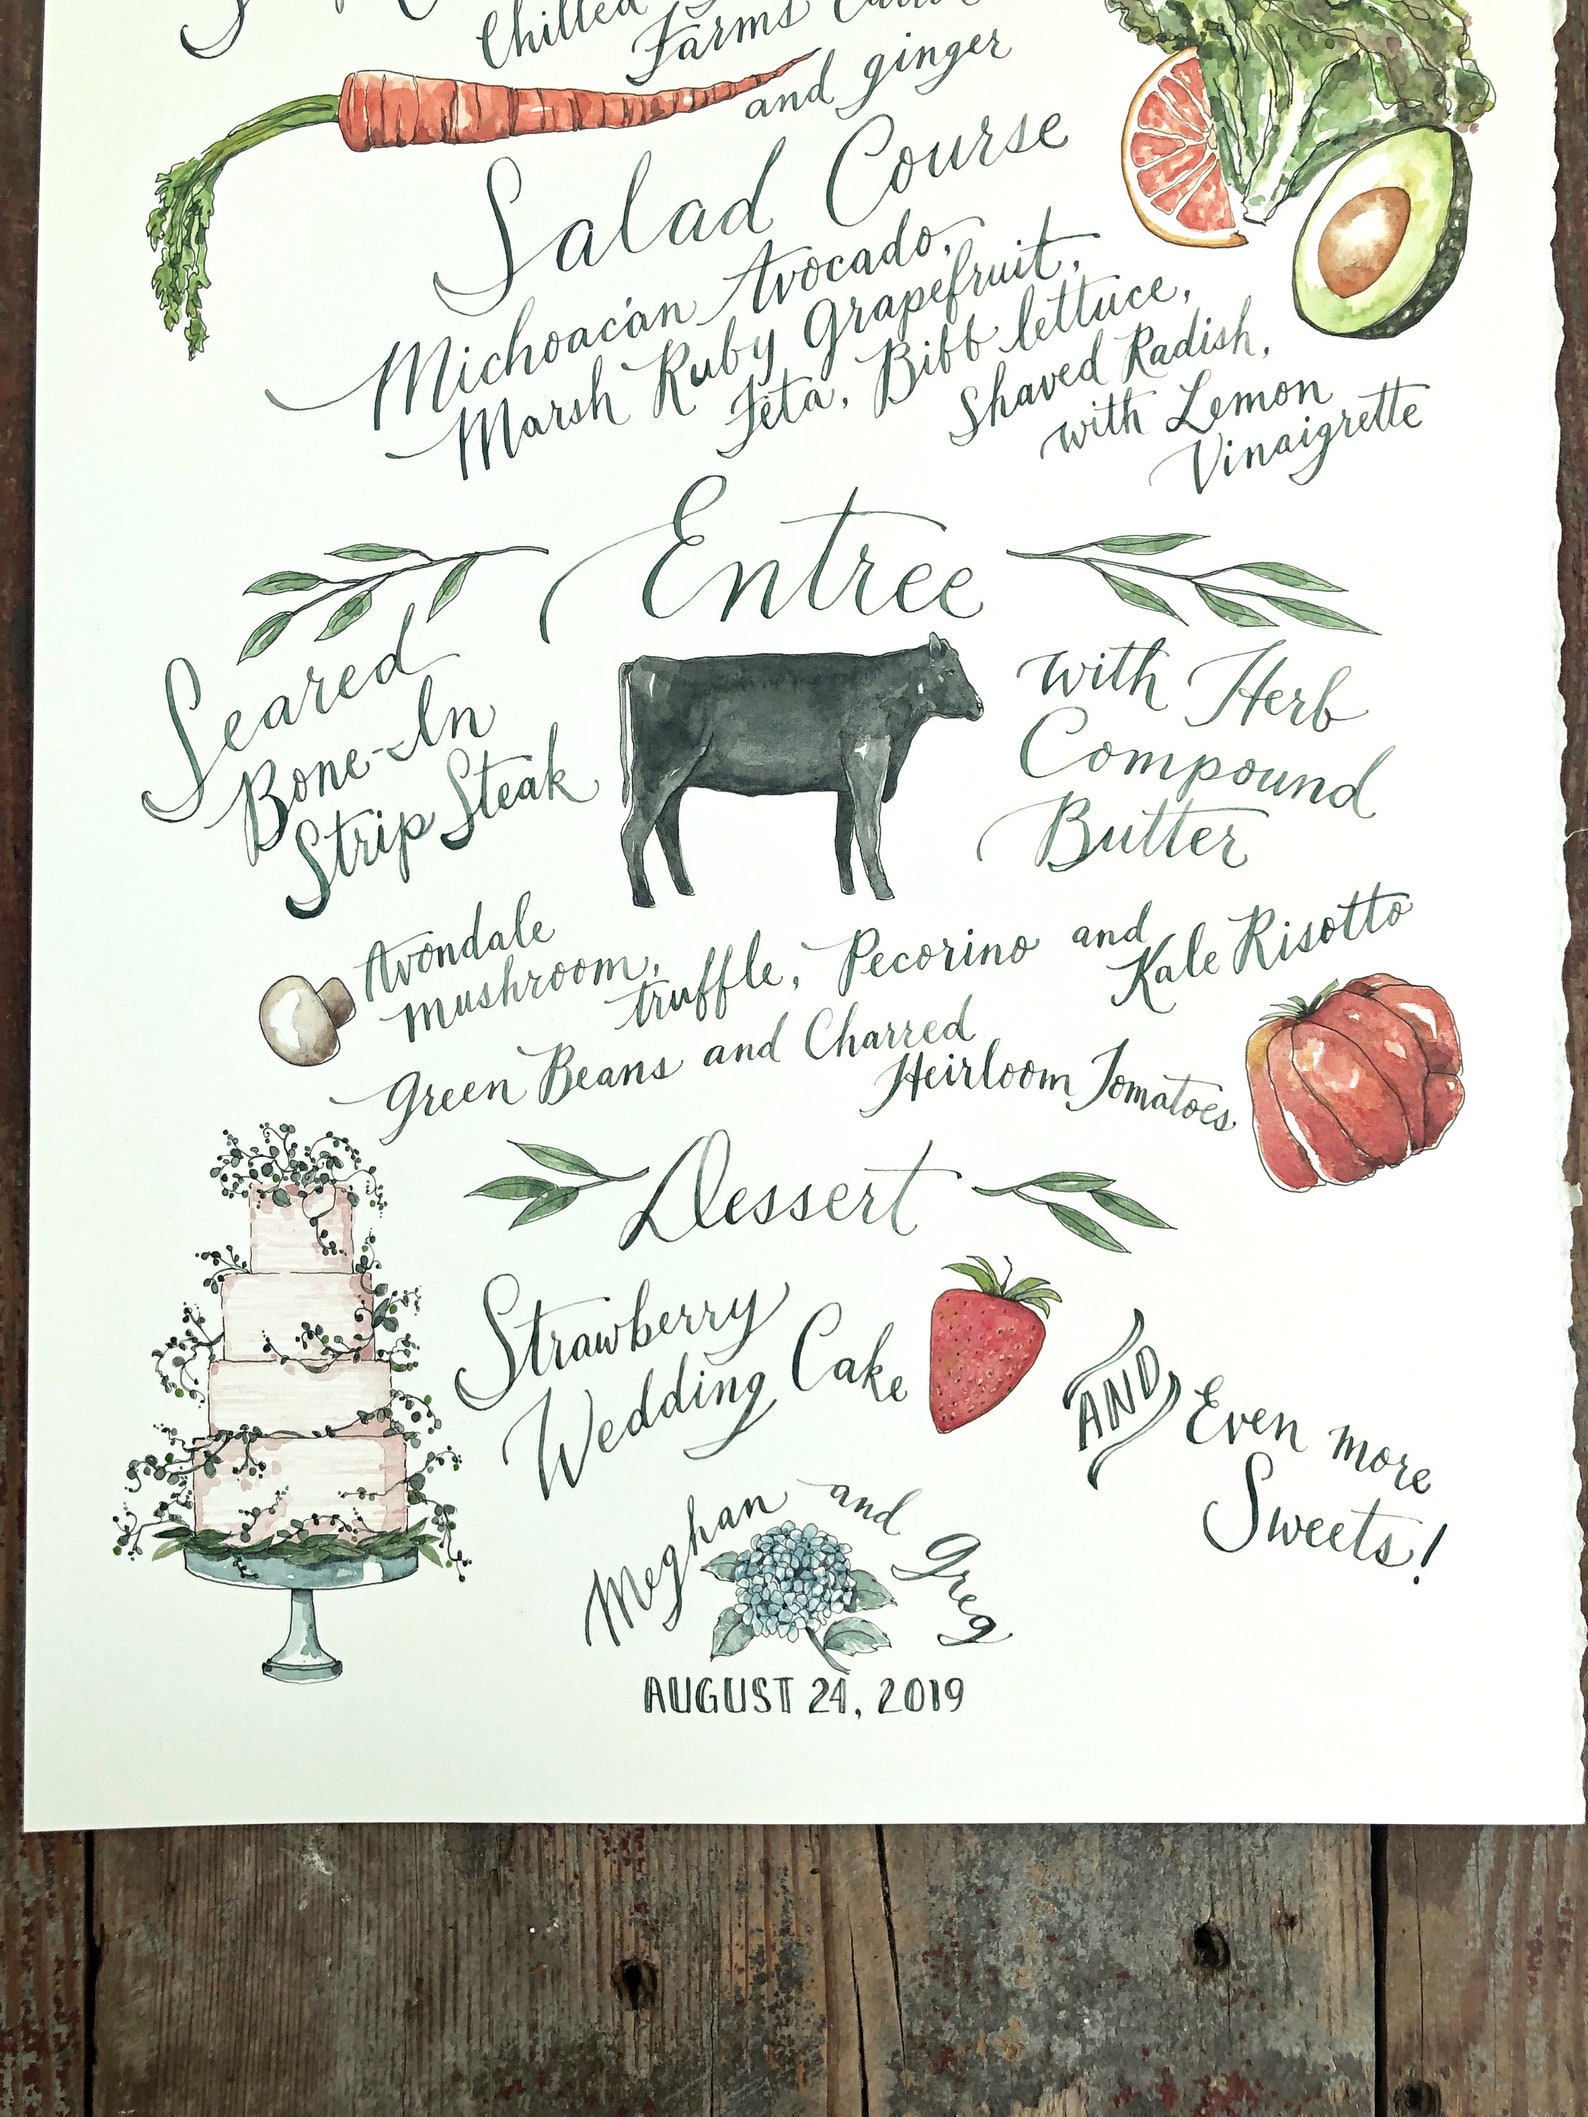 Chilled
Farms
and ginger
Salad Course
Michoacán Avocado,
Marsh Ruby Grapefruit,
Feta, Bibb lettuce,
Shaved Radish,
with Lemon
Vinaigrette
Entree
Seared
Bone-In
Strip Steak
with Herb
Compound
Butter
Avondale
mushroom,
truffle, Pecorino and
Kale Risotto
Green Beans and Charred
Heirloom Tomatoes
Dessert
Strawberry
Wedding Cake
AND Even more
Sweets!
Meghan and Greg
AUGUST 24, 2019